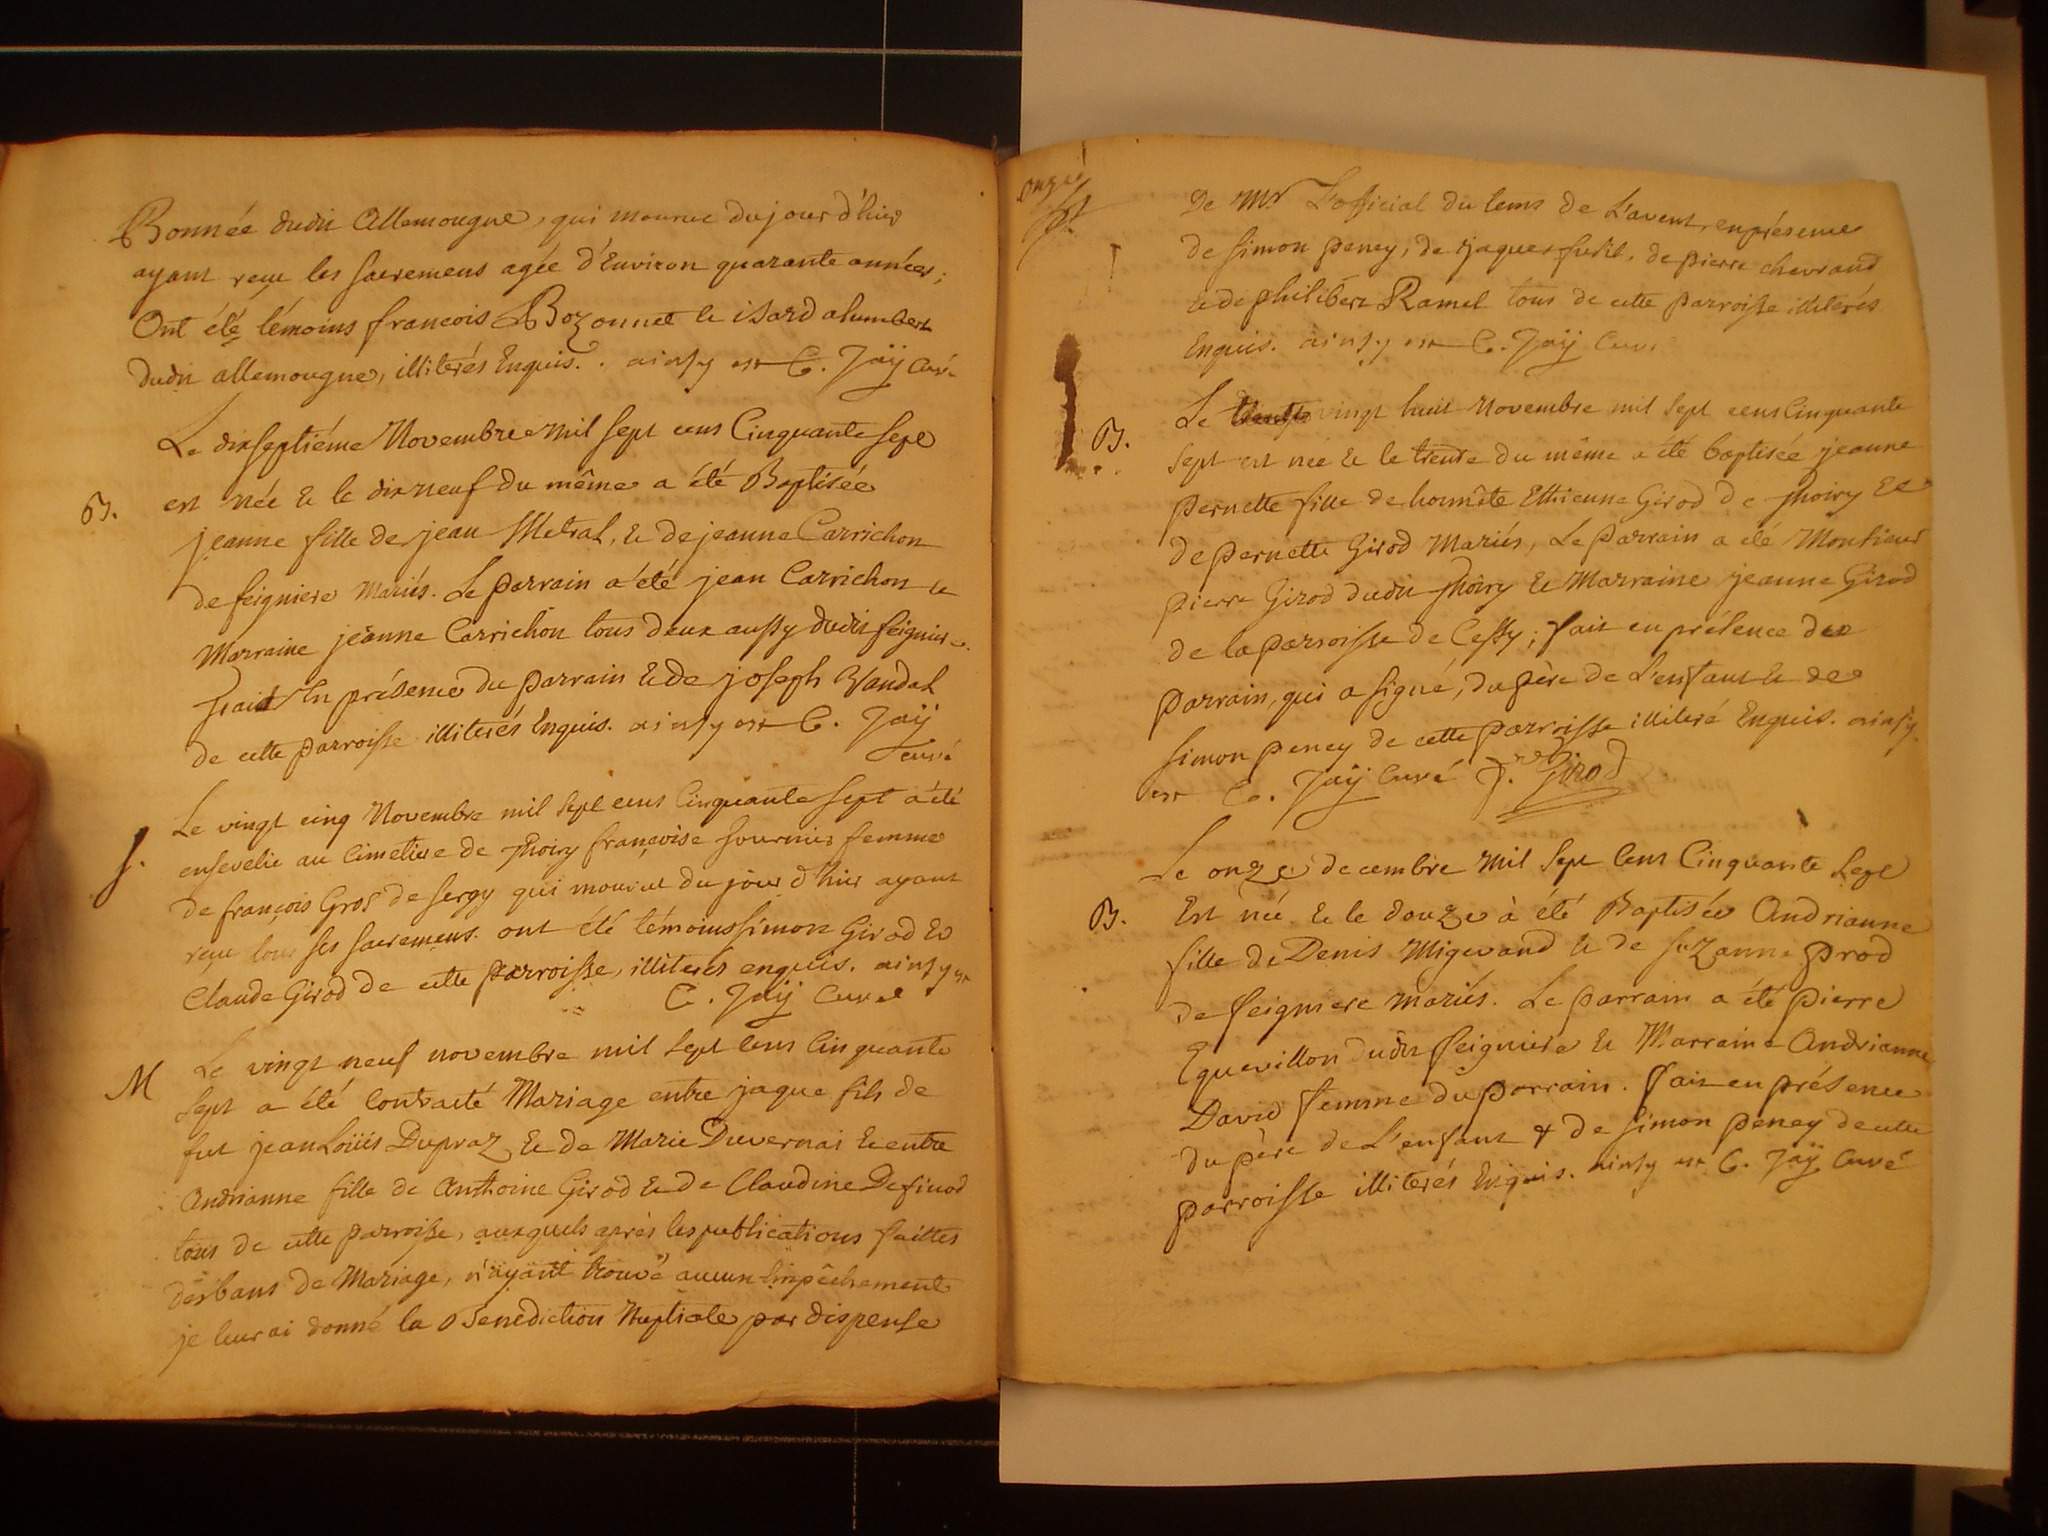 Bonnée dudit Allemougne, qui mourut du jour d'hier
ayant reçu les sacremens agée d'Environ quarante années;
Ont été témoins francois Bozonnet et isard alumbert
dudit allemougne, illiterés Enquis. ainsy est C. Jaÿ Curé
Le dixseptiéme Novembre mil sept cens Cinquante sept
B. est née & le dix neuf du même a été Baptisée
jeanne fille de jean Metral, & de jeanne Carrichon
de feigniere Mariés. Le parrain a été jean Carrichon &
Marraine jeanne Carrichon tous deux aussy dudit feigniere.
fait En présence du parrain & de joseph Vandal
de cette parroisse illiterés Enquis. ainsy est C. Jaÿ
curé
Le vingt cinq Novembre mil sept cens Cinquante sept a été
S. ensevelie au Cimetiere de Thoiry françoise fournier femme
de françois Gros de sergy qui mourut du jour d'hier ayant
reçu tous ses sacremens. ont été témoins simon Girod &
Claude Girod de cette parroisse, illiterés enquis. ainsy est
C. Jaÿ Curé
M Le vingt neuf novembre mil sept cens Cinquante
sept a été Contracté Mariage entre jaque fils de
fut jean Loüis Dupraz & de Marie Duvernai & entre
Andrianne fille de Anthoine Girod & de Claudine Definod
tous de cette parroisse, auxquels après les publications faittes
des bans de Mariage, n'ayant trouvé aucun Empêchement
je leur ai donné la Benediction Nuptiale par dispense
onze
De Mr L'official du tems de L'avent, en présence
de simon peney, de jaques fusil, de pierre chevrand
& de philibert Ramel tous de cette parroisse illiterés
Enquis. ainsy est C. Jaÿ Curé
B. Le trente vingt huit Novembre mil sept cens Cinquante
sept est née & le trente du même a été baptisée jeanne
pernette fille de honnête Ethienne Girod de Thoiry &
de pernette Girod Mariés, Le parrain a été Monsieur
pierre Girod dudit Thoiry & Marraine jeanne Girod
de la parroisse de Cessy; fait en présence du
parrain, qui a signé, du père de L'enfant & de
simon peney de cette parroisse illiteré Enquis. ainsy
est C. Jaÿ Curé P. Girod
Le onze decembre mil sept Cens Cinquante sept
B. Est née & le douze à été Baptisée Andrianne
fille de Denis Migerand & de suzanne prod
de feigniere mariés. Le parrain a été pierre
Equevillon dudit feigniere & Marraine Andrianne
David femme du parrain. fait en présence
du père de L'enfant & de simon peney de cette
parroisse illiterés Enquis. ainsy est C. Jaÿ Curé